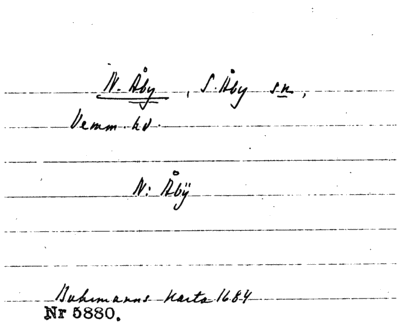 N. Åby, S. Åby sn,
Vemm. hd.
N: Åbÿ
Buhrmanns karta 1684
Nr 5880.